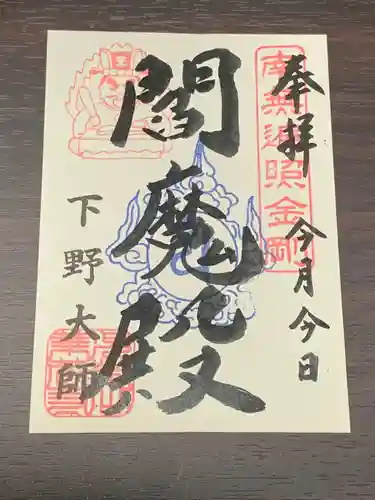 奉拝
今月今日
南無遍照金剛
閻魔殿
下野大師